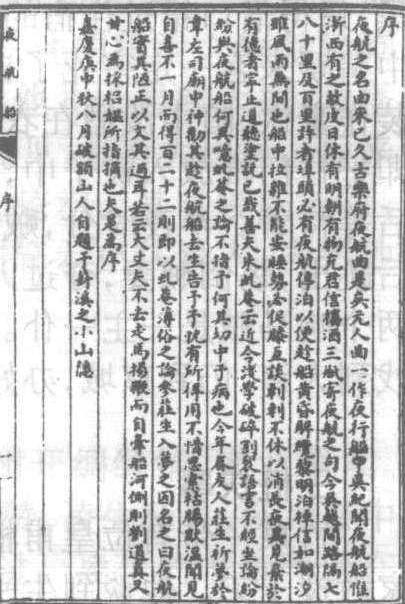 序
夜航之名由來已久古樂府夜航曲是矣元人曲一作夜行船中吳紀聞夜航船惟
浙西有之故皮日休有明朝有物充君信酒三瓶寄夜航之句今吳越間路隔七
八十里及百里許者埠頭必有夜航停泊以便趁船黃昏解纜黎明泊岸信如潮汐
雖風雨無間也船中拉雜不能安睡勢必促膝互談剌剌不休以消長夜無見棄於
有德者乎止道聽塗說已哉善夫朱此菴云近今淺學破碎割裂諸書不暇坐論紛
紛與夜航船何異噫此菴之論不指予何其切中予病也今年春友人莊生祈夢於
韋左司廟中神勸其趁夜航船去生告于予恍有所得用不惜思索枯腸默溫聞見
自春不一月而得百二十二則即以此菴薄俗之論參莊生入夢之因名之曰夜航
船實其陋正以文其過耳若云大丈夫不去走馬揚鞭而自棄船河側則劉道真又
甘心為採梠媼所指摘也夫是為序
嘉慶庚申秋八月破額山人自題于斜溪之小山隱
夜航船 序